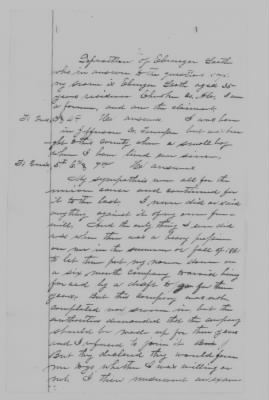 Deposition of Ebenezer Leath
who in answer to the questions says
my name is Ebenezer Leath aged 35
years residence Cherokee Co. Ala. I am
a farmer, and am the claimant
To Int. 3 & 4th He answers I was born
in Jefferson Co. Tennessee but was brou
ght to this county when a small boy
where I have lived ever since.
To Inter. 5th 6th & 7th He answers
My sympathies were all for the
union cause and continued for
it to the last. I never did or said
anything against it of my own free
will, And the only thing I ever did
was when there was a heavy pressure
on me in the summer or fall of 186
to let them put my name down on
a six month company to avoid being
forced by a draft to go for three
years. But this company was not
completed nor sworn in but the
authorities demanded that the company
should be made up for three years
and I refused to join it
But they declared they would force
me to go whether I was willing or
not. I then underwent an exam